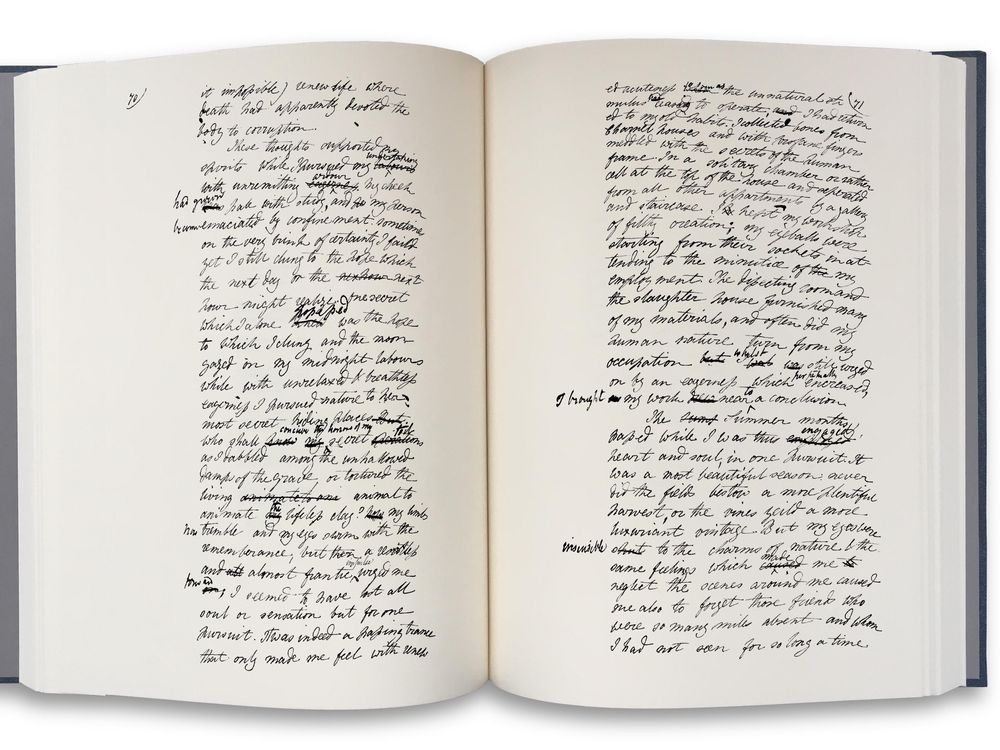 70)
it impossible) renew life where
death had apparently devoted the
body to corruption.
These thoughts supported my
spirits while I pursued my undertaking
with unremitting ardour My cheek
had grown pale with study, and my person
become emaciated by confinement. sometime
on the very brink of certainty I faild
yet I still clung to the hope which
the next day or the next
hour might realize. One secret
which I alone possessed was the hope
to which I clung and the moon
gazed on my midnight labours
while with unrelaxed & breathless
eagerness I pursued nature to her
most secret hiding places.
who shall conceive the horrors of my secret toils
as I dabbled among the unhallowed
damps of the grave, or tortured the
living animal to
animate the lifeless clay? my limbs
now tremble and my eyes swim with the
remembrance; but then a resistless
and almost frantic impulse urged me
forward; I seemed to have lost all
soul or sensation but for one
pursuit. It was indeed a passing trance
that only made me feel with renew
(71
ed acuteness the unnatural sti
mulus ceasing to operate, I had return
ed to my old habits. I collected bones from
charnel houses and with profane fingers
meddled with the secrets of the human
frame. In a solitary chamber or rather
cell at the top of the house and seperated
from all other appartments by a gallery
and staircase I kept my workshop
of filthy creation; my eyeballs were
starting from their sockets in at
tending to the minutiæ of my
employment. The dissecting room and
the slaughter house furnished many
of my materials, and often did my
human nature turn from my
occupation whilst still urged
on by an eagerness which perpetually encreased,
I brought my work near to a conclusion
The Summer months
passed while I was thus engaged,
heart and soul, in one pursuit. It
was a most beautiful season; never
did the fields bestow a more plentiful
harvest, or the vines yeild a more
luxuriant vintage. But my eyes were
insensible to the charms of nature & the
same feelings which made me
neglect the scenes around me caused
me also to forget those friends who
were so many miles absent and whom
I had not seen for so long a time